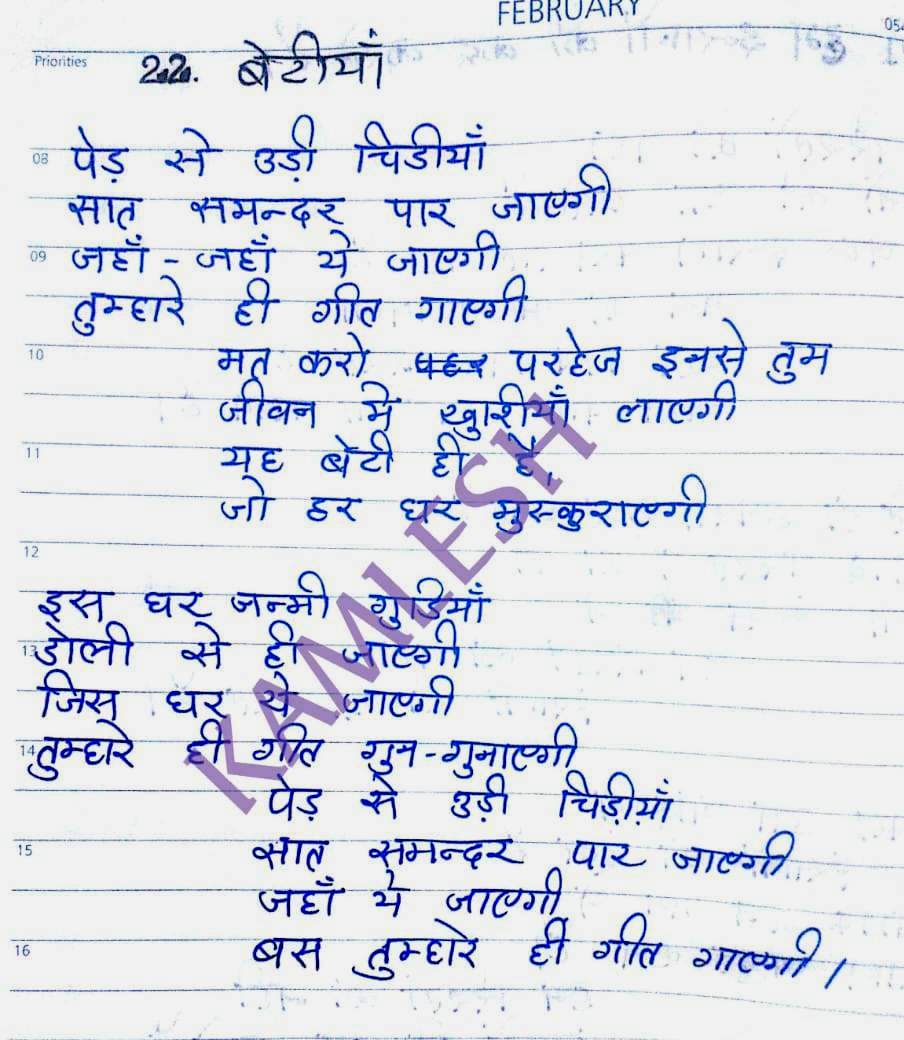 FEBRUARY
054
Priorities
22. बेटीयाँ
08 पेड़ से उड़ी चिडीयाँ
सात समन्दर पार जाएगी
09 जहाँ - जहाँ ये जाएगी
तुम्हारे ही गीत गाएगी
10 मत करो परहेज इनसे तुम
जीवन मे खुशीयाँ लाएगी
11 यह बेटी ही है,
जो हर घर मुस्कुराएगी
12
इस घर जन्मी गुडियाँ
13 डोली से ही जाएगी
जिस घर ये जाएगी
14 तुम्हारे ही गीत गुन-गुनाएगी
पेड़ से उड़ी चिड़ीयाँ
15 सात समन्दर पार जाएगी
जहाँ ये जाएगी
16 बस तुम्हारे ही गीत गाएगी।
KAMLESH